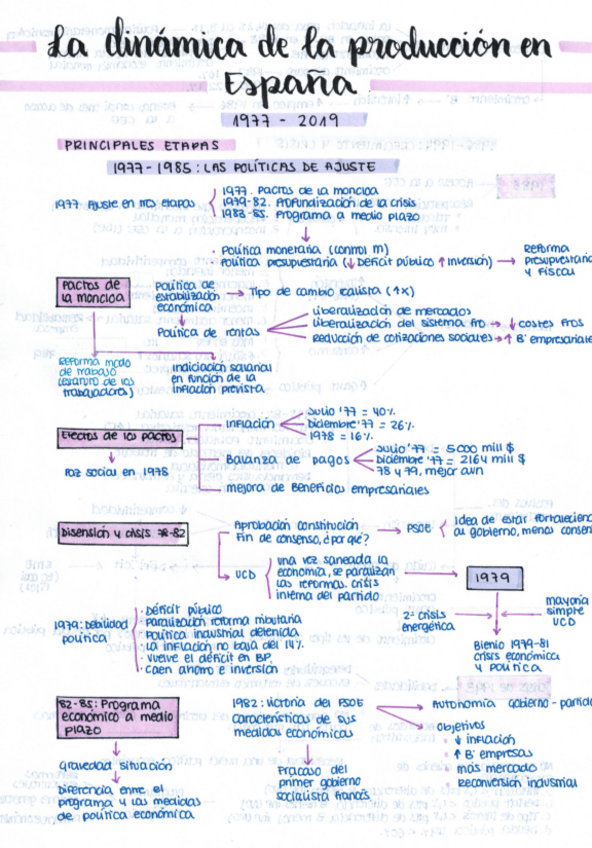 La dinámica de la producción en
España
1977 - 2019
PRINCIPALES ETAPAS
1977-1985: LAS POLÍTICAS DE AJUSTE
1977 Ajuste en tres etapas
1977. Pactos de la moncloa
1979-82. Profundización de la crisis
1982-85. Programa a medio plazo
· Política monetaria (control m)
· Política presupuestaria (↓ Déficit público ↑ Inversión) →
Reforma
presupuestaria
y fiscal
Pactos de
la moncloa
Política de
estabilización
económica
→ Tipo de cambio realista (↑X)
Política de rentas
Liberalización de mercados
Liberalización del sistema fro → ↓ costes fros
Reducción de cotizaciones sociales → ↑ Bº empresariale
Reforma mcdo
de trabajo
(estatuto de los
trabajadores)
Indiciación salarial
en función de la
inflación prevista
Efectos de los pactos
Paz social en 1978
Inflación
Julio '77 = 40%
Diciembre '77 = 26%
1978 = 16%
Balanza de pagos
Julio '77 = 5000 mill $
Diciembre '77 = 2164 mill $
78 y 79, mejor aun
mejora de Beneficios empresariales
Disensión y crisis 78-82
Aprobación constitución
Fin de consenso, ¿por qué?
→ PSOE
Idea de estar fortalecien
al gobierno, menos conse
UCD
una vez saneada la
economía, se paralizan
las reformas. crisis
interna del partido
1979
2ª crisis
energética
mayoría
simple
UCD
Bienio 1979-81
crisis económica
y política
1979: debilidad
política
· Déficit público
· Paralización reforma tributaria
· Política industrial detenida
· La inflación no baja del 14%
· vuelve el déficit en BP.
· caen ahorro e inversión
82-85: Programa
económico a medio
plazo
gravedad situación
Diferencia entre el
programa y las medidas
de política económica
1982: victoria del PSOE
características de sus
medidas económicas
Fracaso del
primer gobierno
socialista francés
Autonomía gobierno-partido
Objetivos
· ↓ inflación
· ↑ Bº empresas
· más mercado
· Reconversión industrial